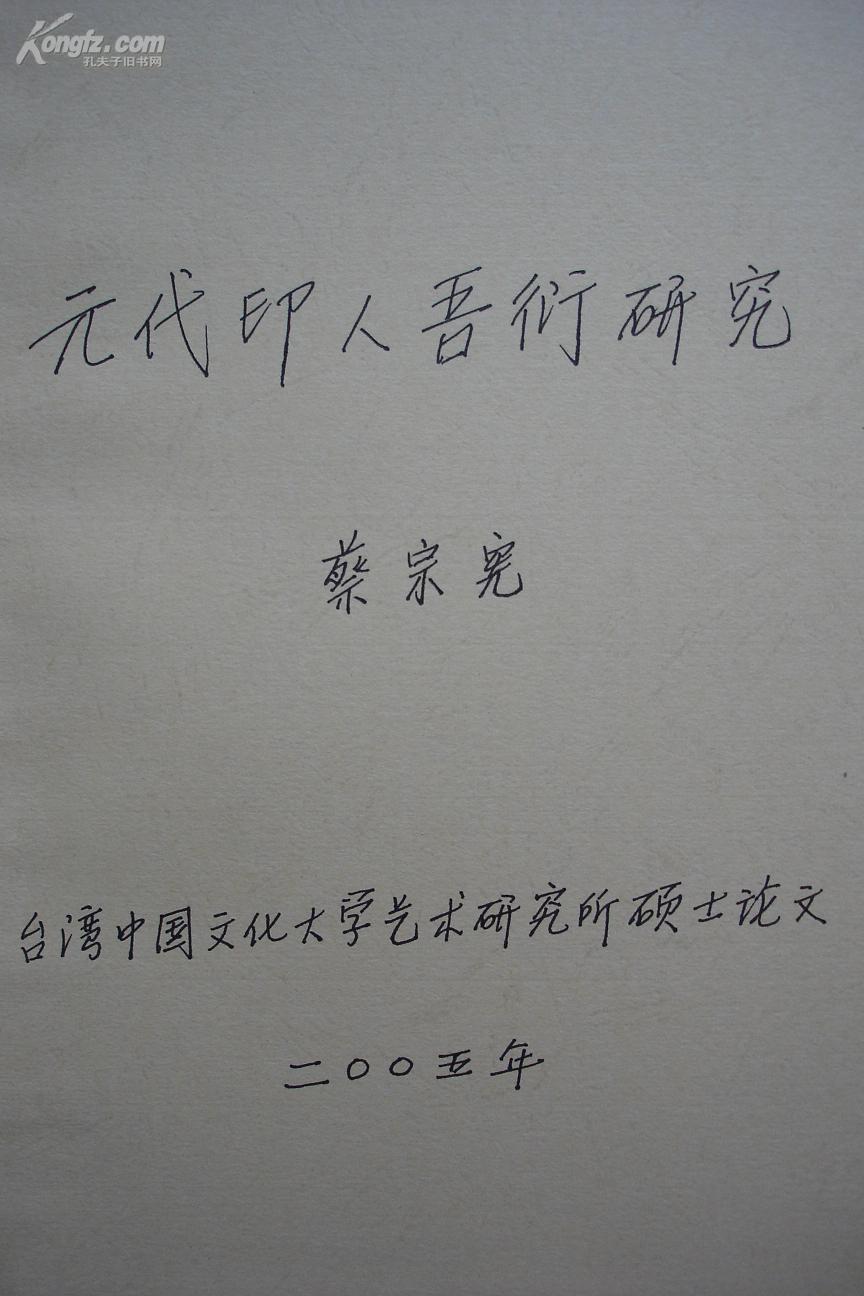 Kongfz.com
孔夫子旧书网
元代印人吾衍研究
蔡宗宪
台湾中国文化大学艺术研究所硕士论文
二〇〇五年